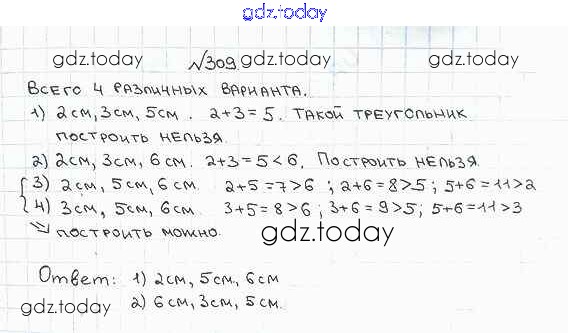 gdz.today
gdz.today №309 gdz.today gdz.today
Всего 4 различных варианта.
1) 2см, 3см, 5см. 2+3=5. Такой треугольник
построить нельзя.
2) 2см, 3см, 6см. 2+3=5<6. Построить нельзя.
3) 2см, 5см, 6см. 2+5=7>6; 2+6=8>5; 5+6=11>2
4) 3см, 5см, 6см. 3+5=8>6; 3+6=9>5; 5+6=11>3
⇒ построить можно. gdz.today
Ответ: 1) 2см, 5см, 6см
gdz.today 2) 6см, 3см, 5см.